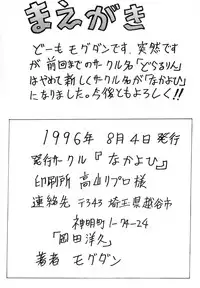 まえがき
どーも モグダンです。突然です
が前回までのサークル名「どらるりん」
はやめて新しくサークル名が「なかよひ」
になりました。今後ともよろしく!!
1996年 8月4日 発行
発行サークル『なかよひ』
印刷所 高山リプロ様
連絡先 〒343 埼玉県越谷市
神明町1-74-24
「岡田洋久」
著者 モグダン